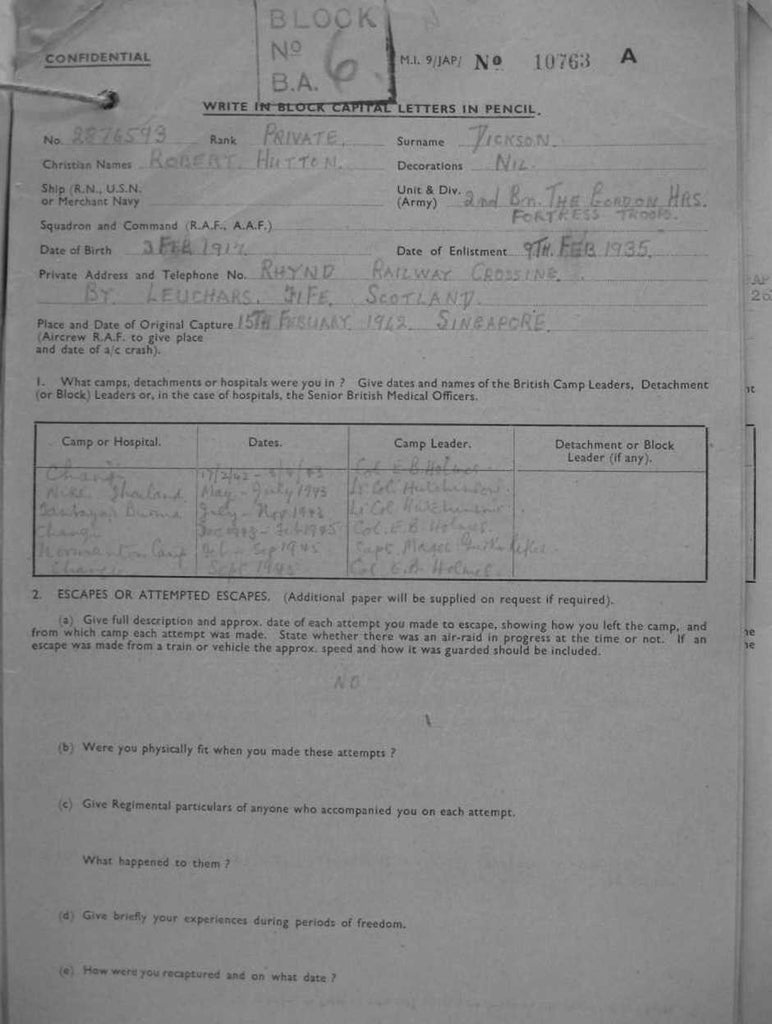 BLOCK
Nº 6
B.A.
CONFIDENTIAL
M.I. 9/JAP/ Nº 10763 A
WRITE IN BLOCK CAPITAL LETTERS IN PENCIL.
No. 2876593 Rank PRIVATE. Surname DICKSON.
Christian Names ROBERT HUTTON. Decorations NIL.
Ship (R.N., U.S.N.
or Merchant Navy
Unit & Div. 2nd Bn. THE GORDON HRS.
(Army) FORTRESS TROOPS.
Squadron and Command (R.A.F., A.A.F.)
Date of Birth 3 FEB 1917. Date of Enlistment 9TH. FEB 1935.
Private Address and Telephone No. RHYND RAILWAY CROSSING.
BY LEUCHARS. FIFE. SCOTLAND.
Place and Date of Original Capture 15TH FEBUARY 1942. SINGAPORE.
(Aircrew R.A.F. to give place
and date of a/c crash).
1. What camps, detachments or hospitals were you in ? Give dates and names of the British Camp Leaders, Detachment
(or Block) Leaders or, in the case of hospitals, the Senior British Medical Officers.
Camp or Hospital. Dates. Camp Leader. Detachment or Block
Leader (if any).
Changi 17/2/42 - Col E.B. Holmes
Thailand May - July 1943 Lt Col Hutchinson
Burma July - Nov 1943 Lt Col Hutchinson
Changi Dec 1943 - Feb 1945 Col. E.B Holmes.
Normanton Camp Feb - Sep 1945 Capt.
Changi Sept 1945 Col E.B. Holmes.
2. ESCAPES OR ATTEMPTED ESCAPES. (Additional paper will be supplied on request if required).
(a) Give full description and approx. date of each attempt you made to escape, showing how you left the camp, and
from which camp each attempt was made. State whether there was an air-raid in progress at the time or not. If an
escape was made from a train or vehicle the approx. speed and how it was guarded should be included.
NO
(b) Were you physically fit when you made these attempts ?
(c) Give Regimental particulars of anyone who accompanied you on each attempt.
What happened to them ?
(d) Give briefly your experiences during periods of freedom.
(e) How were you recaptured and on what date ?